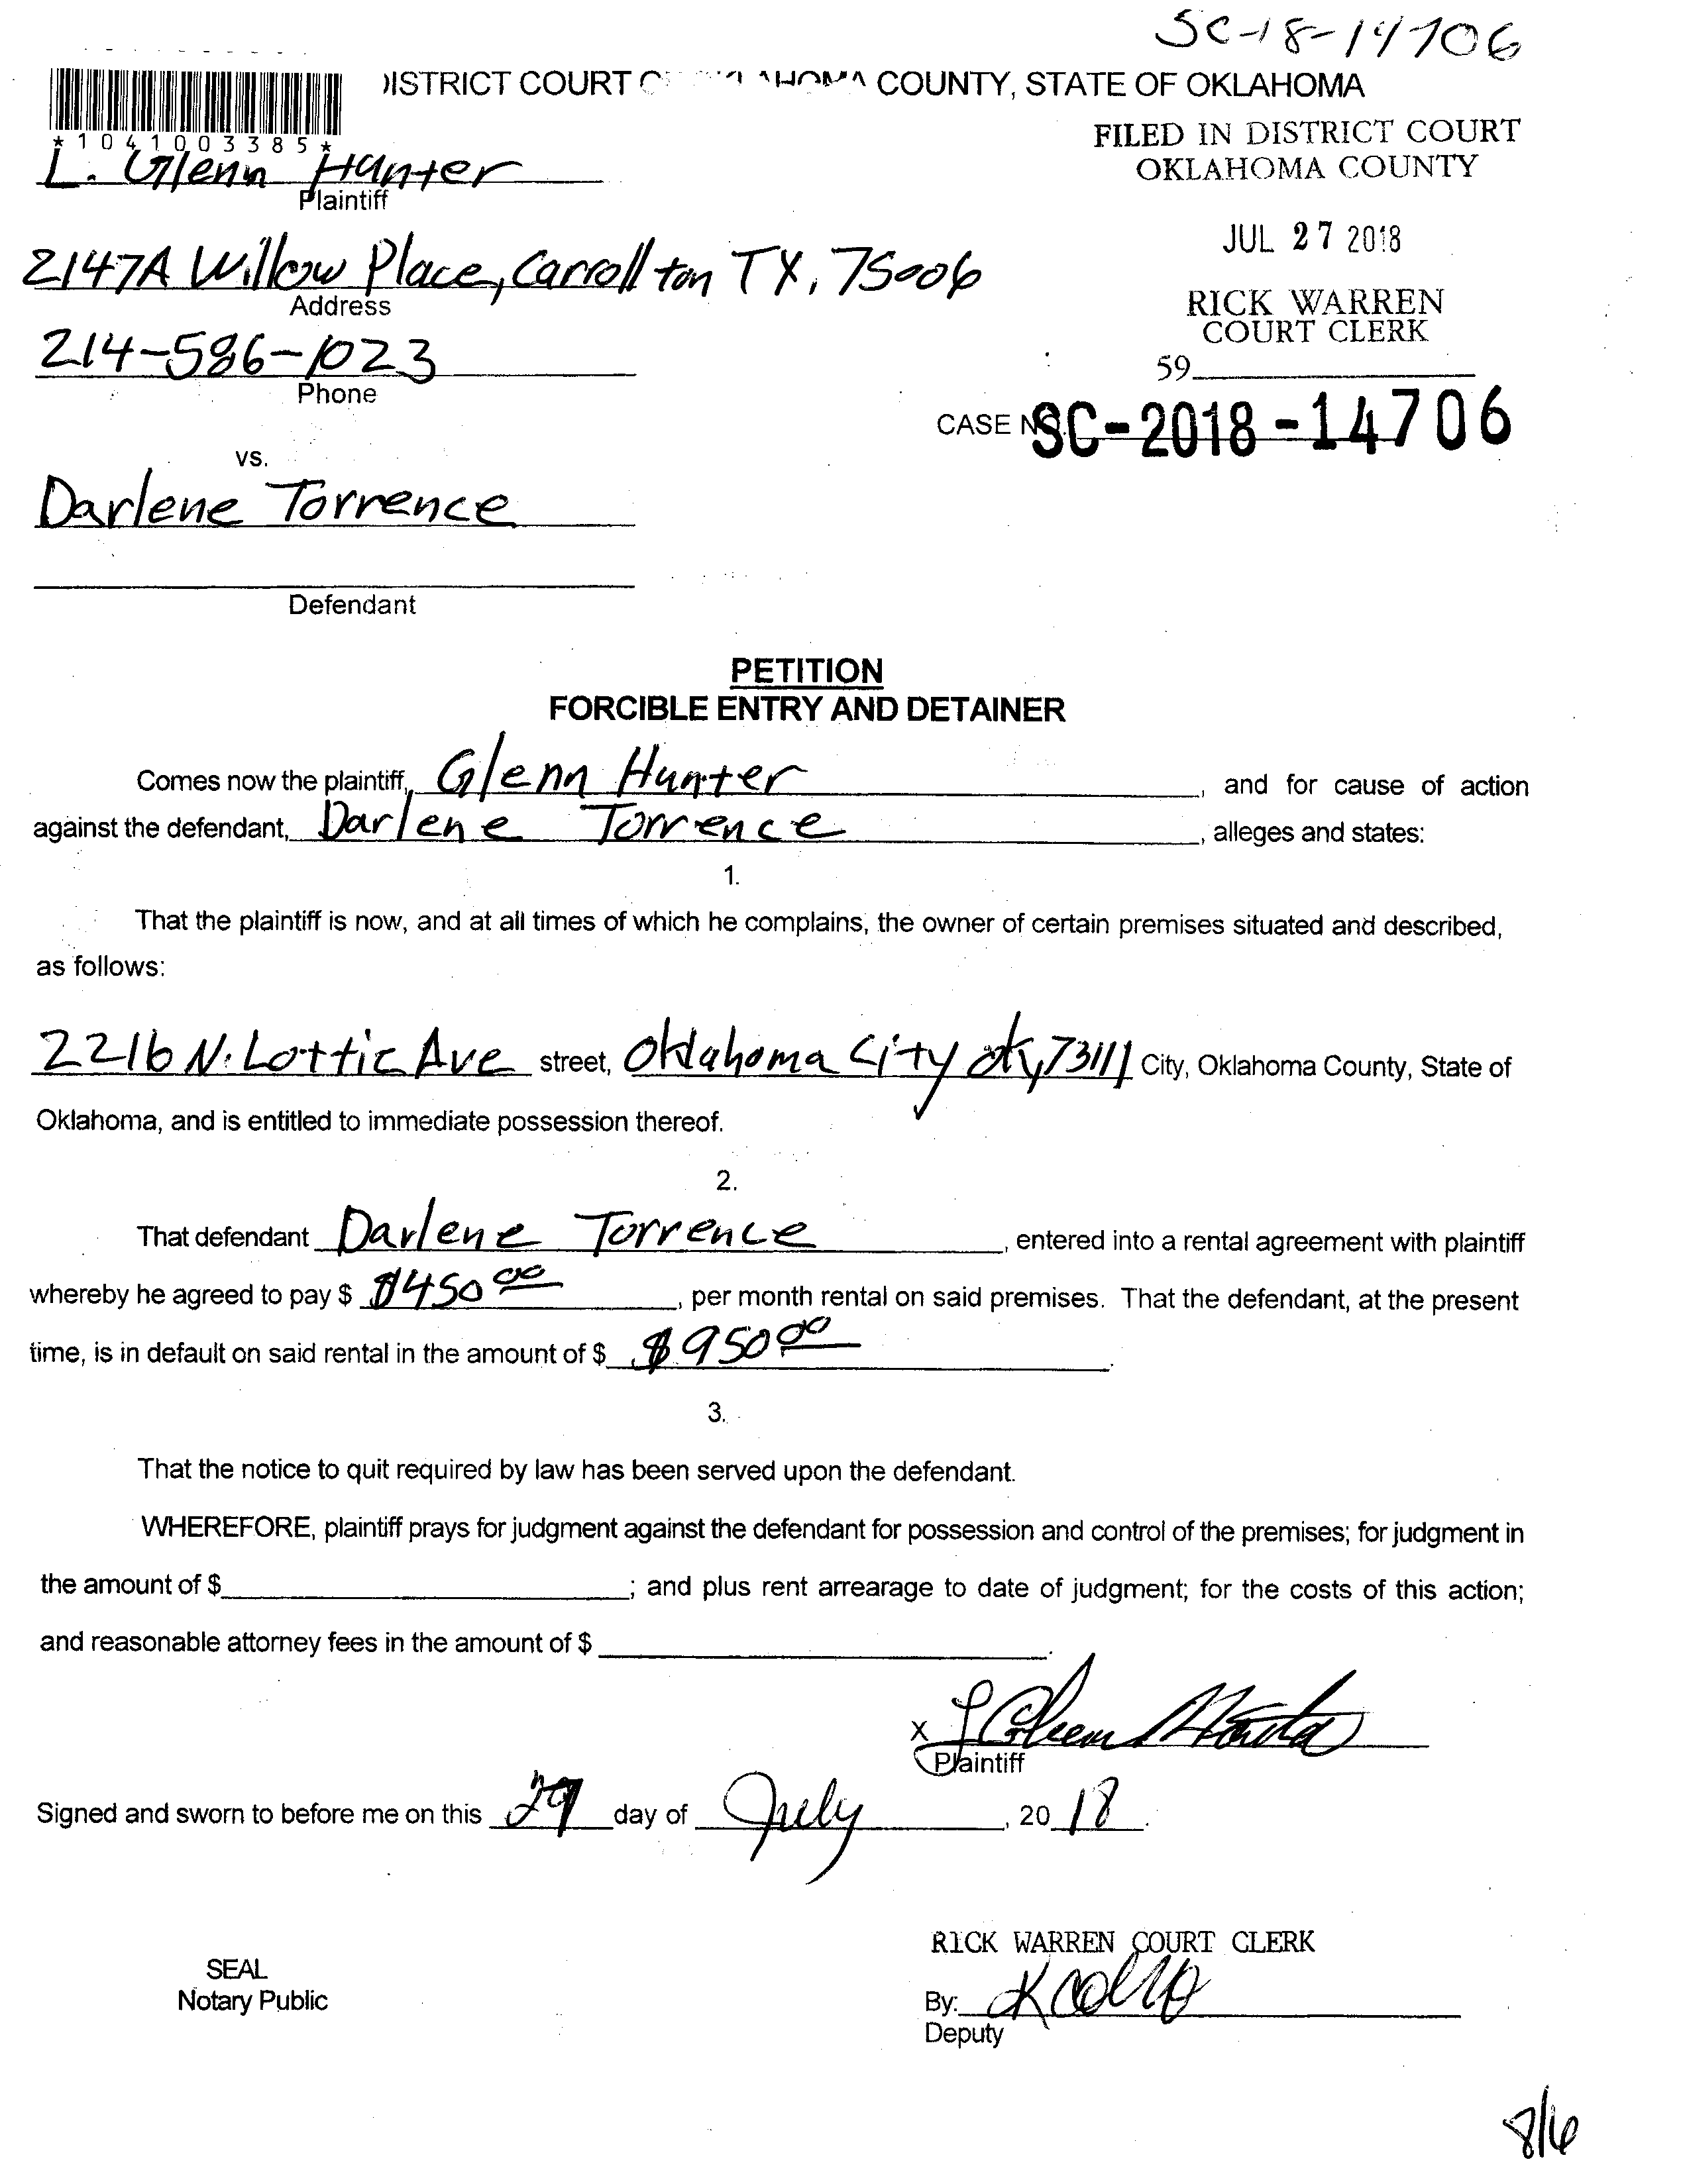 SC-18-14706
DISTRICT COURT OF OKLAHOMA COUNTY, STATE OF OKLAHOMA
*1041003385*
FILED IN DISTRICT COURT
OKLAHOMA COUNTY
L. Glenn Hunter
Plaintiff
JUL 27 2018
2147A Willow Place, Carrollton TX, 75006
Address
RICK WARREN
COURT CLERK
214-586-1023
Phone
59
CASE NO. SC-2018-14706
vs.
Darlene Torrence
Defendant
PETITION
FORCIBLE ENTRY AND DETAINER
Comes now the plaintiff, Glenn Hunter, and for cause of action
against the defendant, Darlene Torrence, alleges and states:
1.
That the plaintiff is now, and at all times of which he complains, the owner of certain premises situated and described,
as follows:
2216 N. Lottie Ave street, Oklahoma City ok, 73111 City, Oklahoma County, State of
Oklahoma, and is entitled to immediate possession thereof.
2.
That defendant Darlene Torrence, entered into a rental agreement with plaintiff
whereby he agreed to pay $ $450 00, per month rental on said premises. That the defendant, at the present
time, is in default on said rental in the amount of $ $950 00.
3.
That the notice to quit required by law has been served upon the defendant.
WHEREFORE, plaintiff prays for judgment against the defendant for possession and control of the premises; for judgment in
the amount of $; and plus rent arrearage to date of judgment; for the costs of this action;
and reasonable attorney fees in the amount of $.
X L Glenn Hunter
Plaintiff
Signed and sworn to before me on this day of July, 20 18.
RICK WARREN COURT CLERK
SEAL
Notary Public
By:
Deputy
8/6